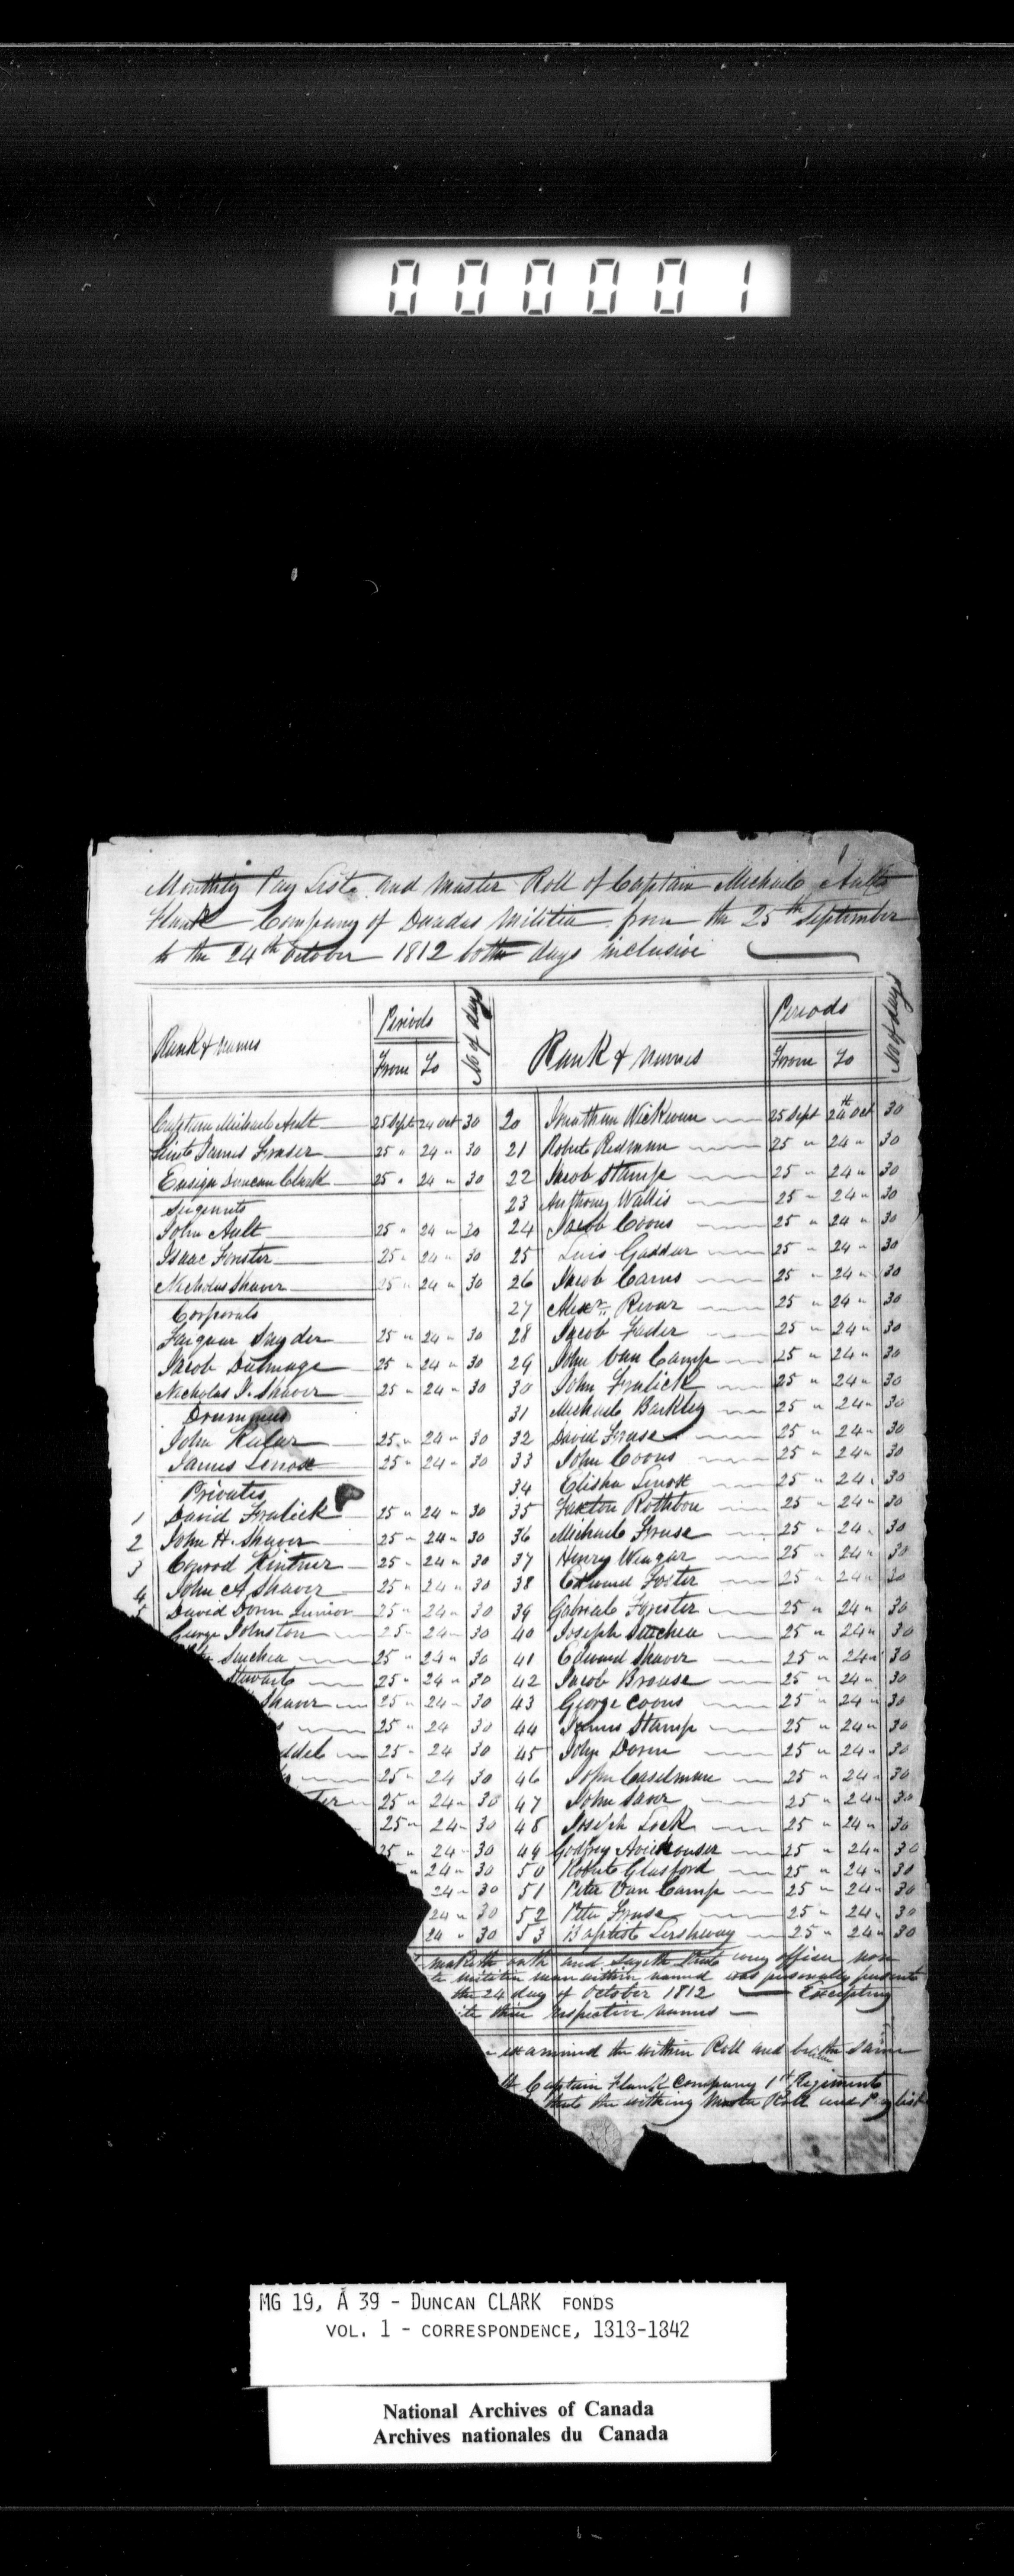 000001
Monthly Pay List and Muster Roll of Captain Michael Ault's
Flank Company of Dundas Militia from the 25th September
to the 24th October 1812 both days inclusive
Rank & names Periods No of days Rank & names Periods No of days
From To From To
Captain Michael Ault 25 Sept 24 Oct 30 20 Jonathan Wickwere 25 Sept 24th Oct 30
Lieut James Fraser 25 " 24 " 30 21 Robert Redman 25 " 24 " 30
Ensign Duncan Clark 25 " 24 " 30 22 Jacob Stamp 25 " 24 " 30
Sergents 23 Anthony Wallis 25 " 24 " 30
John Ault 25 " 24 " 30 24 Jacob Coons 25 " 24 " 30
Isaac Forster 25 " 24 " 30 25 Luis Goddar 25 " 24 " 30
Nicholas Shaver 25 " 24 " 30 26 Jacob Carns 25 " 24 " 30
Corporals 27 Alexr. Rivar 25 " 24 " 30
Farquar Snyder 25 " 24 " 30 28 Jacob Fader 25 " 24 " 30
Jacob Dulmage 25 " 24 " 30 29 John Van Camp 25 " 24 " 30
Nicholas J. Shaver 25 " 24 " 30 30 John Fralick 25 " 24 " 30
Drummers 31 Michael Barkley 25 " 24 " 30
John Kular 25 " 24 " 30 32 David Fruse 25 " 24 " 30
James Lenox 25 " 24 " 30 33 John Coons 25 " 24 " 30
Privates 34 Elisha Lenox 25 " 24 " 30
1 David Fralick 25 " 24 " 30 35 Faxton Rothbon 25 " 24 " 30
2 John H. Shaver 25 " 24 " 30 36 Michael Fruse 25 " 24 " 30
3 Conrod Kintner 25 " 24 " 30 37 Henry Weagar 25 " 24 " 30
4 John A Shaver 25 " 24 " 30 38 Edward Foster 25 " 24 " 30
5 David Doran Junior 25 " 24 " 30 39 Gabriel Forister 25 " 24 " 30
George Johnston 25 " 24 " 30 40 Joseph Suchea 25 " 24 " 30
Suchea 25 " 24 " 30 41 Edward Shaver 25 " 24 " 30
Stewart 25 " 24 " 30 42 Jacob Brouse 25 " 24 " 30
Shaver 25 " 24 " 30 43 George Coons 25 " 24 " 30
25 " 24 30 44 James Stamp 25 " 24 " 30
ddel 25 " 24 30 45 John Doran 25 " 24 " 30
25 " 24 30 46 John Caselman 25 " 24 " 30
ter 25 " 24 " 30 47 John Saver 25 " 24 " 30
25 " 24 " 30 48 Joseph Lock 25 " 24 " 30
25 " 24 " 30 49 Godfrey 25 " 24 " 30
" 24 " 30 50 Robert Glasford 25 " 24 " 30
24 " 30 51 Peter Van Camp 25 " 24 " 30
24 " 30 52 Peter Fruse 25 " 24 " 30
24 " 30 53 Baptist Lershway 25 " 24 " 30
maketh oath and sayeth that every officer non
militia man within named was personally present
the 24 day of October 1812 Excepting
their respective names
examined the within Roll and believe the same
Captain Flank Company 1st Regiment
that the withing Muster Roll and Pay list
MG 19, A 39 - DUNCAN CLARK FONDS
VOL. 1 - CORRESPONDENCE, 1813-1842
National Archives of Canada
Archives nationales du Canada